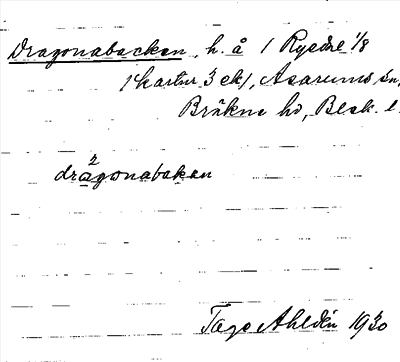 Dragonabacken, h. å 1 Rysdre 1/8
1 kartbr 3 ek/, Asarums sn,
Bräkne hd, Blek. l.
2
dragonabakan
Tage Ahldén 1930